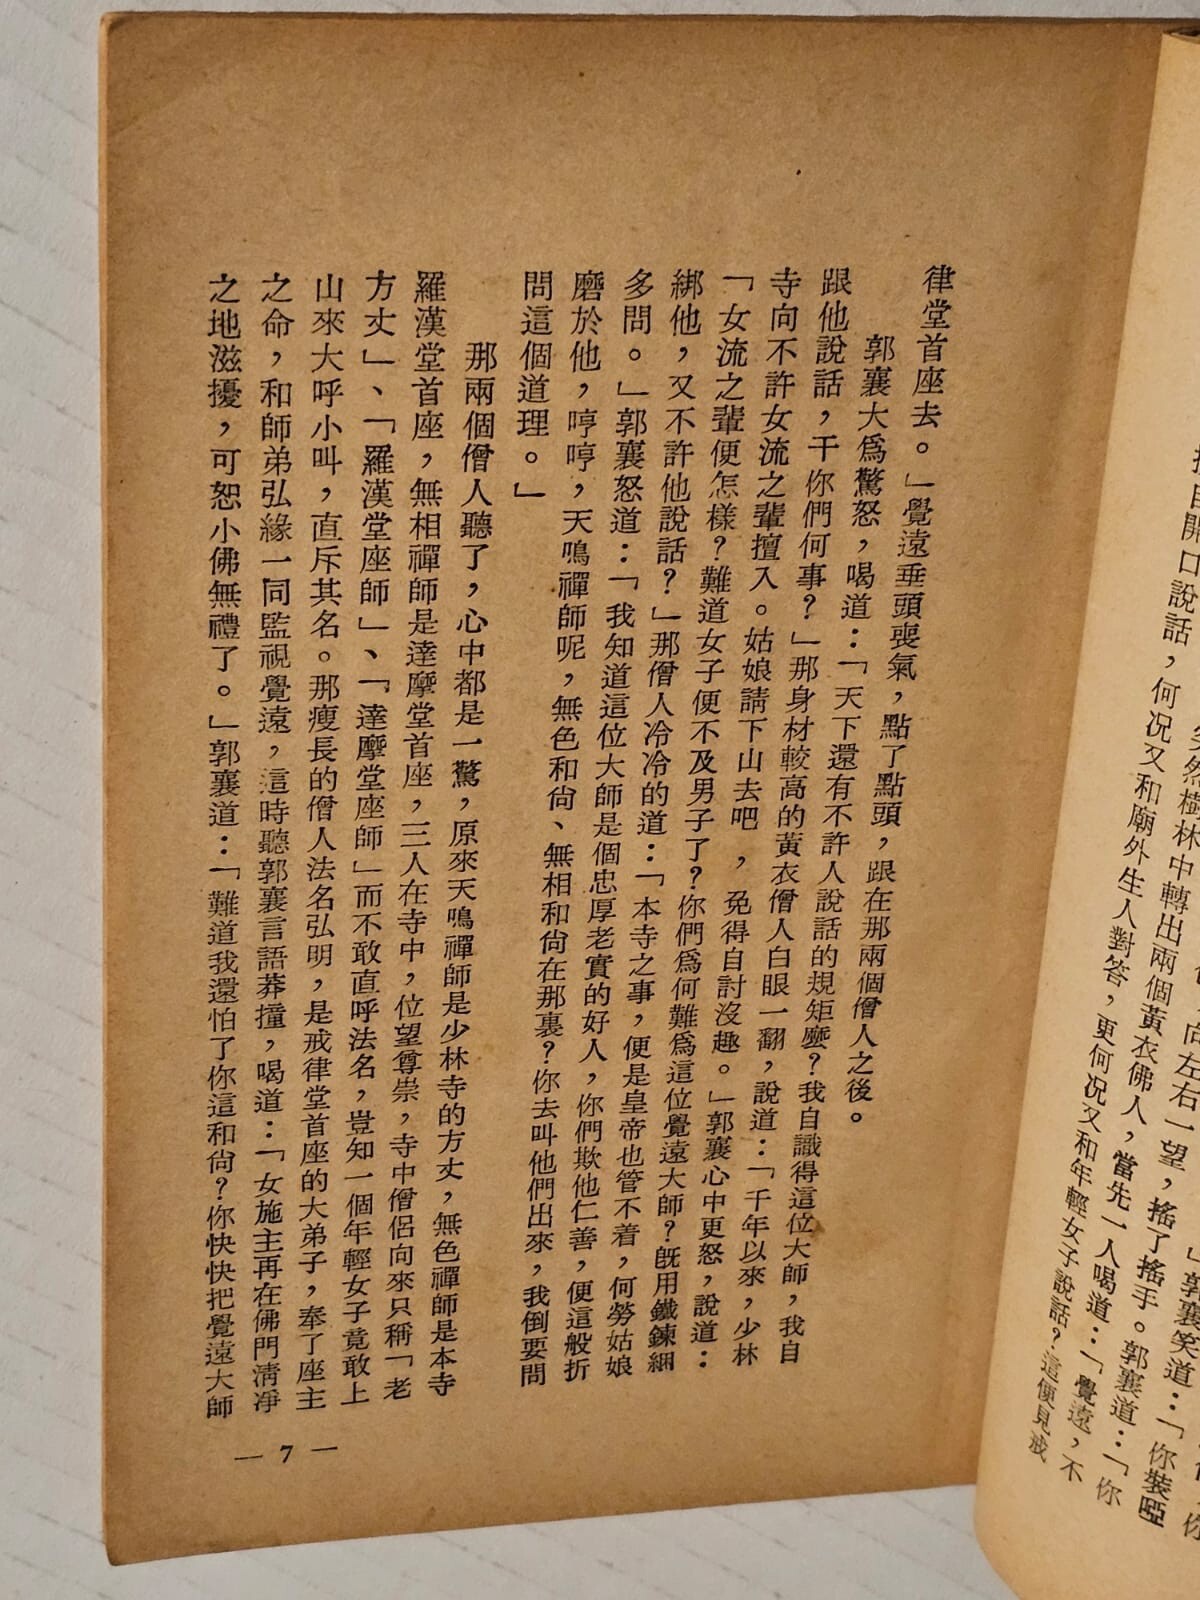 」郭襄笑道：「你裝啞
向左右一望，搖了搖手。郭襄道：「你
突然樹林中轉出兩個黃衣佛人，當先一人喝道：「覺遠，不
自開口說話，何況又和廟外生人對答，更何況又和年輕女子說話？這便見戒
律堂首座去。」覺遠垂頭喪氣，點了點頭，跟在那兩個僧人之後。
郭襄大爲驚怒，喝道：「天下還有不許人說話的規矩麼？我自識得這位大師，我自
跟他說話，干你們何事？」那身材較高的黃衣僧人白眼一翻，說道：「千年以來，少林
寺向不許女流之輩擅入。姑娘請下山去吧，免得自討沒趣。」郭襄心中更怒，說道：
「女流之輩便怎樣？難道女子便不及男子了？你們爲何難爲這位覺遠大師？既用鐵鍊綑
綁他，又不許他說話？」那僧人冷冷的道：「本寺之事，便是皇帝也管不着，何勞姑娘
多問。」郭襄怒道：「我知道這位大師是個忠厚老實的好人，你們欺他仁善，便這般折
磨於他，哼哼，天鳴禪師呢，無色和尙、無相和尙在那裏？你去叫他們出來，我倒要問
問這個道理。」
那兩個僧人聽了，心中都是一驚，原來天鳴禪師是少林寺的方丈，無色禪師是本寺
羅漢堂首座，無相禪師是達摩堂首座，三人在寺中，位望尊崇，寺中僧侶向來只稱「老
方丈」、「羅漢堂座師」、「達摩堂座師」而不敢直呼法名，豈知一個年輕女子竟敢上
山來大呼小叫，直斥其名。那瘦長的僧人法名弘明，是戒律堂首座的大弟子，奉了座主
之命，和師弟弘緣一同監視覺遠，這時聽郭襄言語莽撞，喝道：「女施主再在佛門淸凈
之地滋擾，可恕小佛無禮了。」郭襄道：「難道我還怕了你這和尙？你快快把覺遠大師
— 7 —